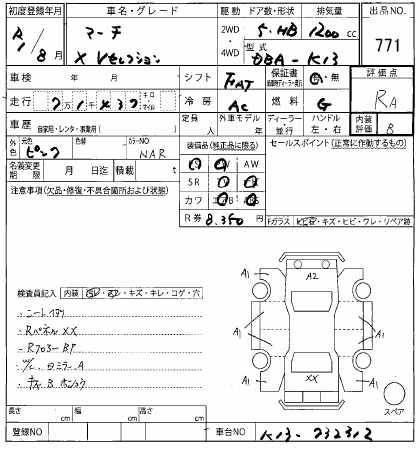 初度登録年月 車名・グレード 駆動 ドア数・形状 排気量 出品NO.
R1/8月 マーチ 2WD・4WD 5・HB 1200cc 771
X Vセレクション 型式 DBA-K13
車検 年 月 シフト FAT 保証書 有・無 評価点
走行 7万1千437キロ マイル 冷房 AC 燃料 G RA
車歴 自家用・レンタ・事業用( ) 定員 人 外車モデル 年 ディーラー・並行 ハンドル 左・右 内装評価 B
外色 元色 ピンク 色替 カラーNO NAR 装備品(純正品に限る) セールスポイント(正常に作動するもの)
名義変更期限 月 日迄 積載 t AW
注意事項(欠品・修復・不具合箇所および状態) SR
カワ
R券 8.350円
Fガラス ・キズ・ヒビ・ワレ・リペア跡
A1 A2 A1
検査員記入 内装 ・キズ・キレ・コゲ・穴
・Rパネル XX
A1 A1
・Rフロアー BP
XX
A1 A1
スペア
長さ cm 幅 cm 高さ cm
登録NO 車台NO K13-732312